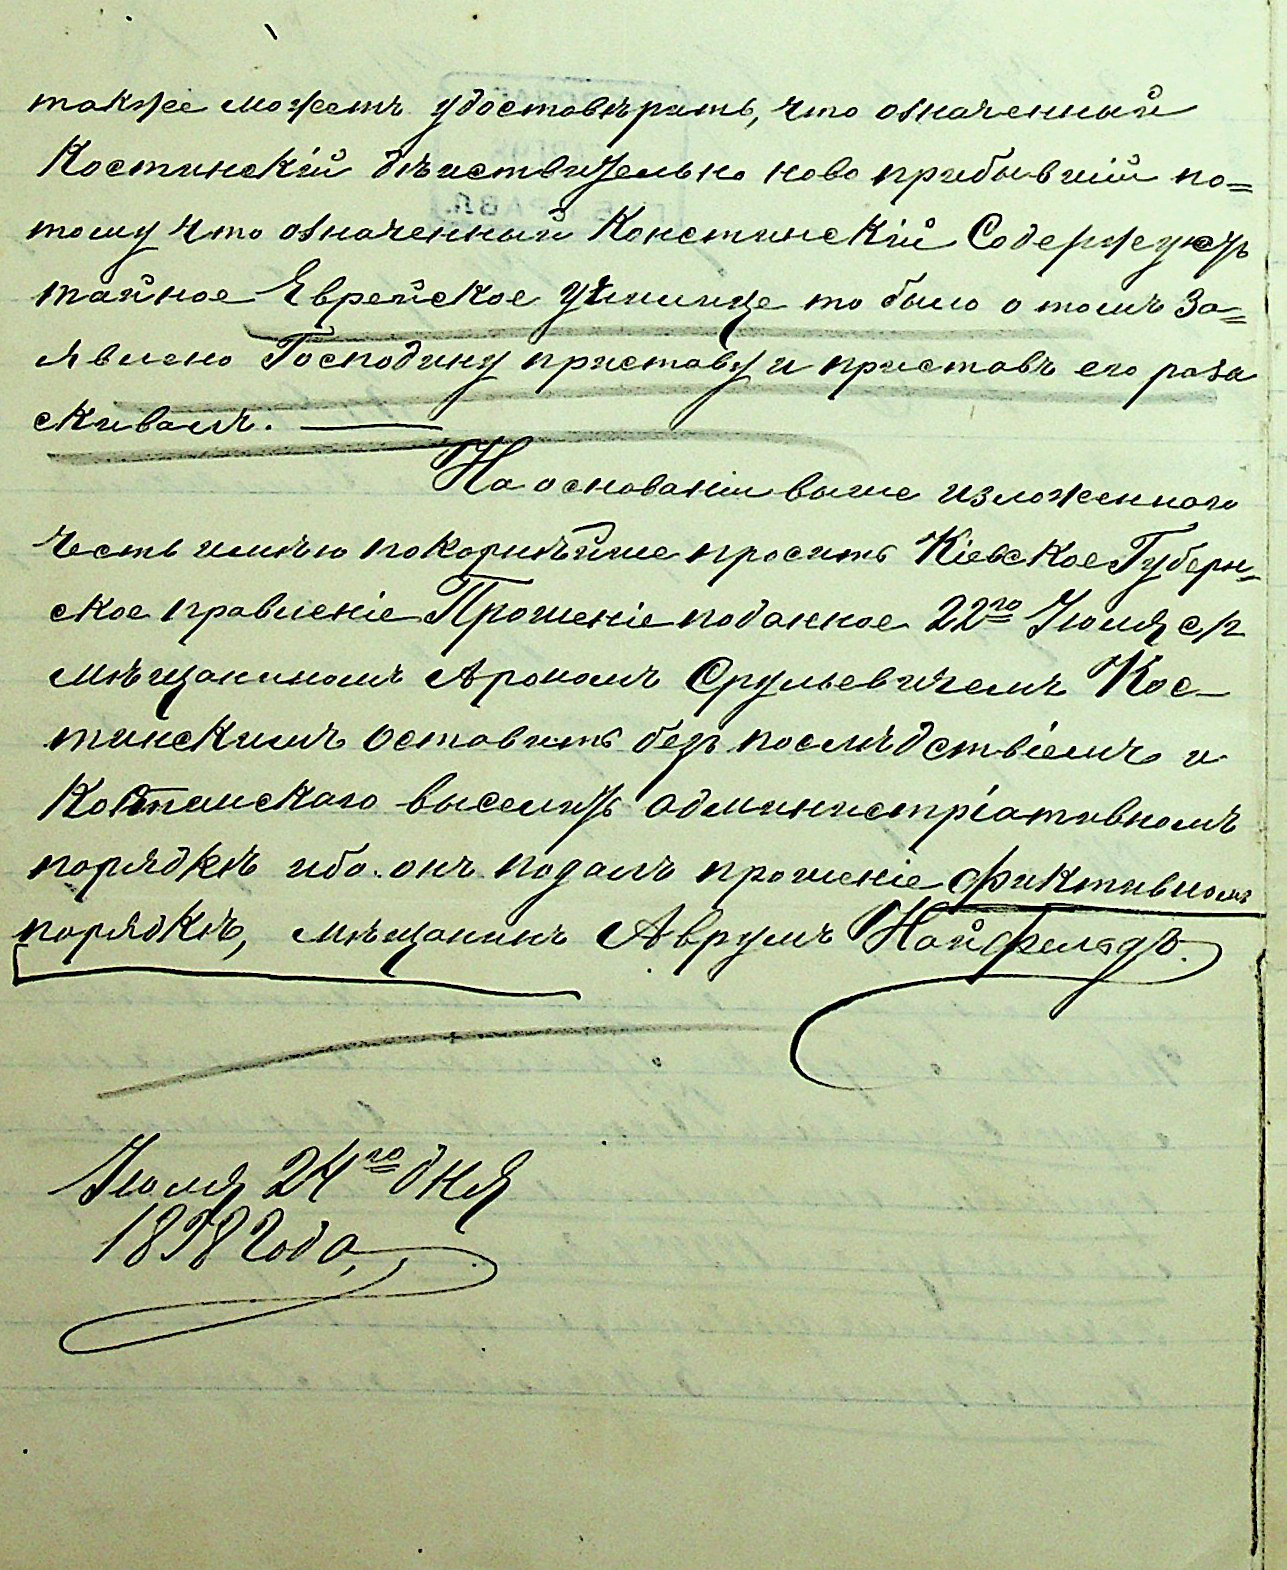 также можетъ удостовѣрить, что означенный
Костинскій дѣиствительно ново прибывшій по=
тому что означенный Констинскій Содержуетъ
тайное Еврейское училище то было о томъ За=
явлено Господину приставу и приставъ его раза
скивалъ.
На основаніи выше изложенного
Честь имѣю покорнѣйше просить Кіевское Губерн-
ское правленіе Прошеніе поданное 22го Іюля с/г
мѣщаниномъ Арономъ Срульевичемъ Кос-
тинскимъ оставить безъ послѣдствіемъ и
Костинскаго выселить администріативномъ
порядкѣ ибо онъ подалъ прошеніе фиктивномъ
порядкѣ, мѣщанинъ Аврумъ Найфельдъ.
Іюля 24го дня
1898 Года,